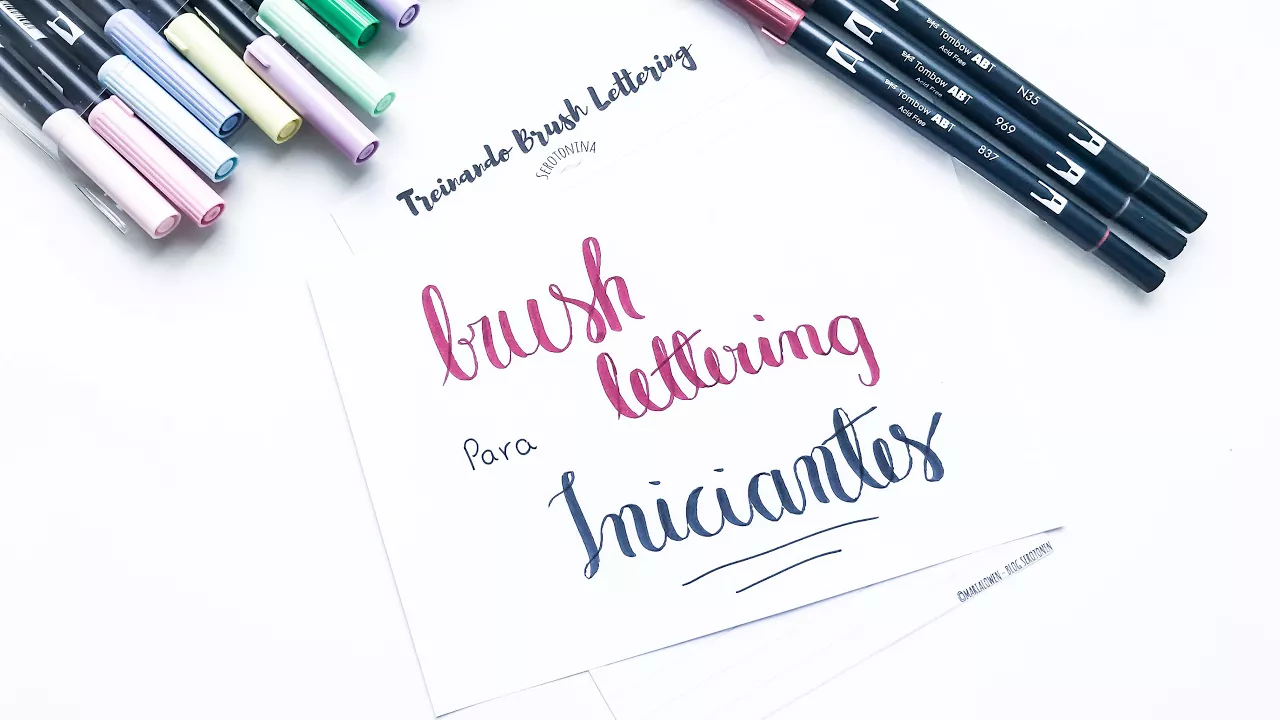 Treinando Brush Lettering
SEROTONINA
brush
lettering
Para
Iniciantes
©MARIALOWEN - BLOG SEROTONIN
Tombow ABT
Acid Free
N35
Tombow ABT
Acid Free
969
Tombow ABT
Acid Free
837